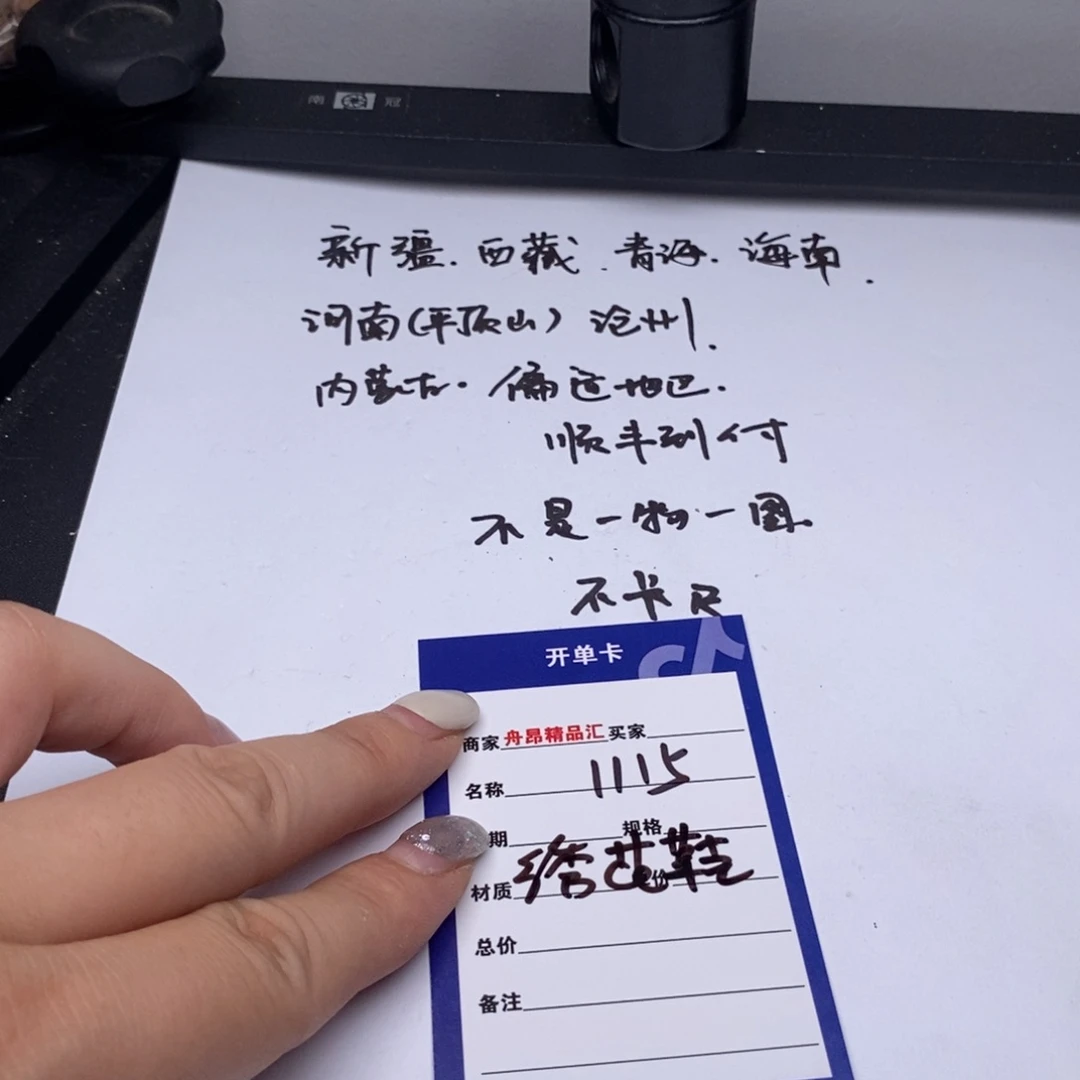 南冠
新疆.西藏.青海.海南.
河南(平顶山)沧州.
内蒙古.偏远地区.
顺丰到付
不是一物一图.
不卡尺
开单卡
商家 舟昂精品汇 买家
名称 1115
期 规格
材质 绣花鞋 价
总价
备注